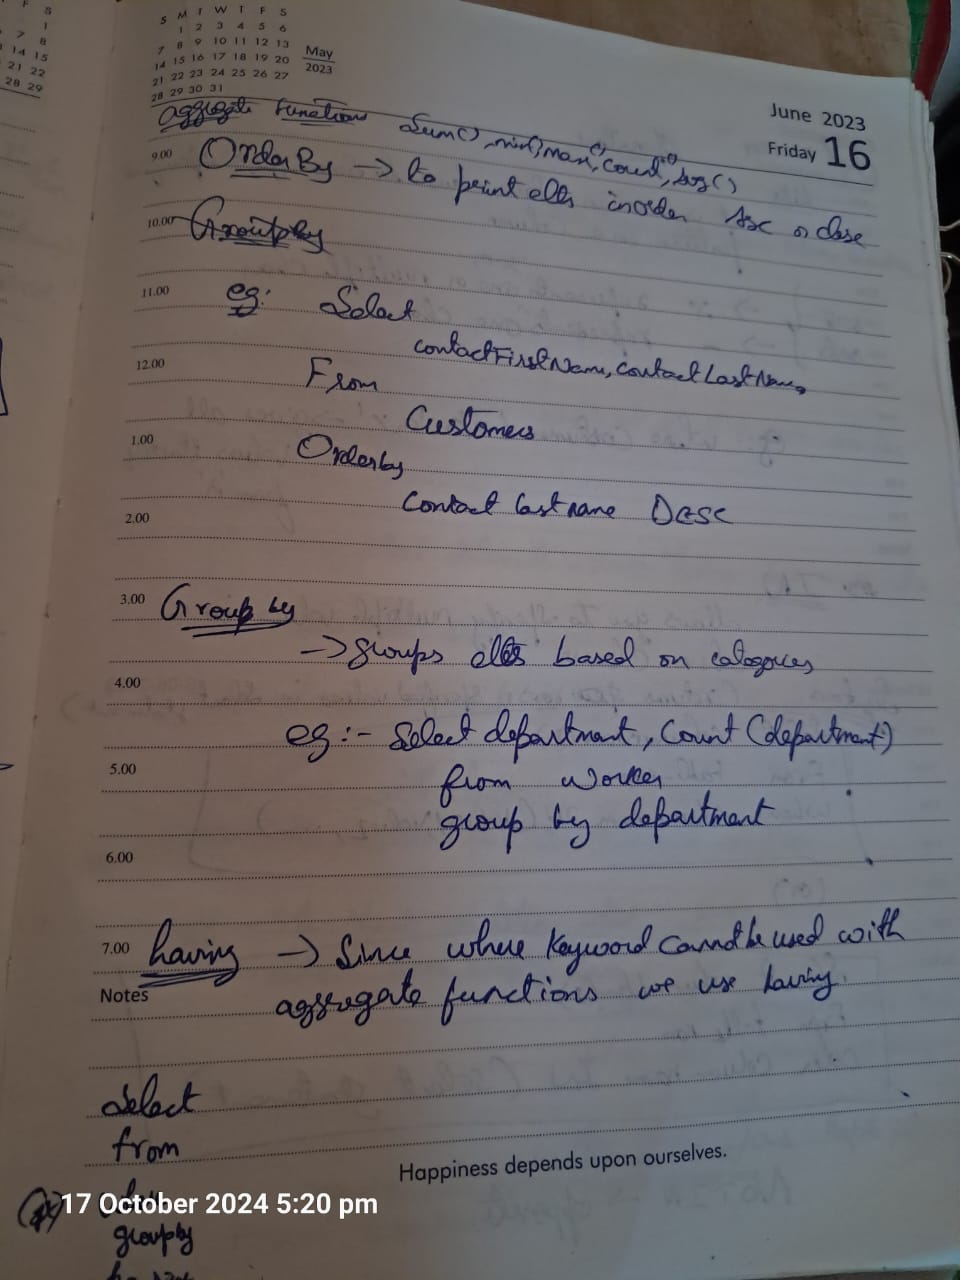 F S
1
7 8
14 15
21 22
28 29
S M T W T F S
1 2 3 4 5 6
7 8 9 10 11 12 13
14 15 16 17 18 19 20
21 22 23 24 25 26 27
28 29 30 31
May
2023
June 2023
Friday 16
aggregate functions Sum(), min(), max(), count(), Avg()
9.00 Order By -> to print ells inorder Asc or
10.00 Group by
11.00 eg: Select
contactFirstName, contactLastName,
12.00 From
Customers
1.00 Orderby
Contact lastname DESC
2.00
3.00 Group by
-> groups based on categories
4.00
eg:- Select department, Count (department)
5.00 from worker
group by department
6.00
7.00 having -> Since where keyword cannot be used with
Notes aggregate functions we use having.
Select
from
Happiness depends upon ourselves.
17 October 2024 5:20 pm
groupby